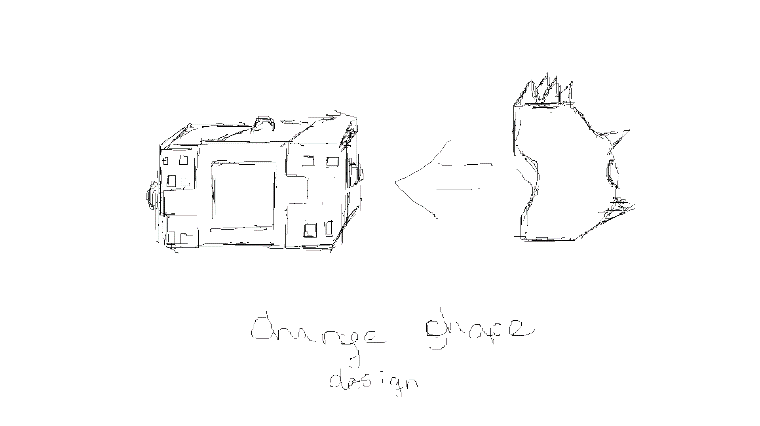 Change shape
design